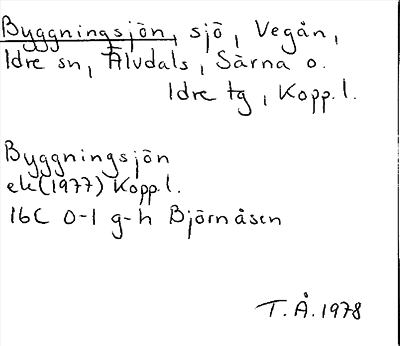 Byggningsjön, sjö, Vegån,
Idre sn, Älvdals, Särna o.
Idre tg, Kopp.l.
Byggningsjön
ek(1977) Kopp.l.
16C 0-1 g-h Björnåsen
T.Å.1978